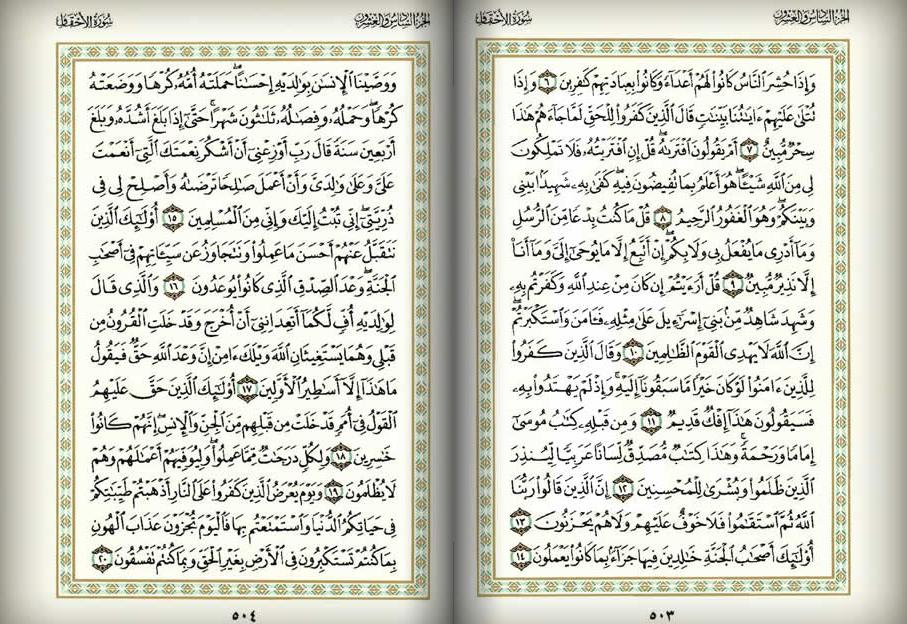 الجزء السادس والعشرون
سورة الأحقاف
وَإِذَا حُشِرَ ٱلنَّاسُ كَانُوا۟ لَهُمْ أَعْدَآءً وَكَانُوا۟ بِعِبَادَتِهِمْ كَـٰفِرِينَ ٦ وَإِذَا
تُتْلَىٰ عَلَيْهِمْ ءَايَـٰتُنَا بَيِّنَـٰتٍ قَالَ ٱلَّذِينَ كَفَرُوا۟ لِلْحَقِّ لَمَّا جَآءَهُمْ هَـٰذَا
سِحْرٌ مُّبِينٌ ٧ أَمْ يَقُولُونَ ٱفْتَرَىٰهُ ۖ قُلْ إِنِ ٱفْتَرَيْتُهُۥ فَلَا تَمْلِكُونَ
لِى مِنَ ٱللَّهِ شَيْـًٔا ۖ هُوَ أَعْلَمُ بِمَا تُفِيضُونَ فِيهِ ۖ كَفَىٰ بِهِۦ شَهِيدًۢا بَيْنِى
وَبَيْنَكُمْ ۖ وَهُوَ ٱلْغَفُورُ ٱلرَّحِيمُ ٨ قُلْ مَا كُنتُ بِدْعًا مِّنَ ٱلرُّسُلِ
وَمَآ أَدْرِى مَا يُفْعَلُ بِى وَلَا بِكُمْ ۖ إِنْ أَتَّبِعُ إِلَّا مَا يُوحَىٰٓ إِلَىَّ وَمَآ أَنَا۠
إِلَّا نَذِيرٌ مُّبِينٌ ٩ قُلْ أَرَءَيْتُمْ إِن كَانَ مِنْ عِندِ ٱللَّهِ وَكَفَرْتُم بِهِۦ
وَشَهِدَ شَاهِدٌ مِّنۢ بَنِىٓ إِسْرَٰٓءِيلَ عَلَىٰ مِثْلِهِۦ فَـَٔامَنَ وَٱسْتَكْبَرْتُمْ ۖ
إِنَّ ٱللَّهَ لَا يَهْدِى ٱلْقَوْمَ ٱلظَّـٰلِمِينَ ١٠ وَقَالَ ٱلَّذِينَ كَفَرُوا۟
لِلَّذِينَ ءَامَنُوا۟ لَوْ كَانَ خَيْرًا مَّا سَبَقُونَآ إِلَيْهِ ۚ وَإِذْ لَمْ يَهْتَدُوا۟ بِهِۦ
فَسَيَقُولُونَ هَـٰذَآ إِفْكٌ قَدِيمٌ ١١ وَمِن قَبْلِهِۦ كِتَـٰبُ مُوسَىٰٓ
إِمَامًا وَرَحْمَةً ۚ وَهَـٰذَا كِتَـٰبٌ مُّصَدِّقٌ لِّسَانًا عَرَبِيًّا لِّيُنذِرَ
ٱلَّذِينَ ظَلَمُوا۟ وَبُشْرَىٰ لِلْمُحْسِنِينَ ١٢ إِنَّ ٱلَّذِينَ قَالُوا۟ رَبُّنَا
ٱللَّهُ ثُمَّ ٱسْتَقَـٰمُوا۟ فَلَا خَوْفٌ عَلَيْهِمْ وَلَا هُمْ يَحْزَنُونَ ١٣
أُو۟لَـٰٓئِكَ أَصْحَـٰبُ ٱلْجَنَّةِ خَـٰلِدِينَ فِيهَا جَزَآءًۢ بِمَا كَانُوا۟ يَعْمَلُونَ ١٤
٥٠٣
الجزء السادس والعشرون
سورة الأحقاف
وَوَصَّيْنَا ٱلْإِنسَـٰنَ بِوَٰلِدَيْهِ إِحْسَـٰنًا ۖ حَمَلَتْهُ أُمُّهُۥ كُرْهًا وَوَضَعَتْهُ
كُرْهًا ۖ وَحَمْلُهُۥ وَفِصَـٰلُهُۥ ثَلَـٰثُونَ شَهْرًا ۚ حَتَّىٰٓ إِذَا بَلَغَ أَشُدَّهُۥ وَبَلَغَ
أَرْبَعِينَ سَنَةً قَالَ رَبِّ أَوْزِعْنِىٓ أَنْ أَشْكُرَ نِعْمَتَكَ ٱلَّتِىٓ أَنْعَمْتَ
عَلَىَّ وَعَلَىٰ وَٰلِدَىَّ وَأَنْ أَعْمَلَ صَـٰلِحًا تَرْضَىٰهُ وَأَصْلِحْ لِى فِى
ذُرِّيَّتِىٓ ۖ إِنِّى تُبْتُ إِلَيْكَ وَإِنِّى مِنَ ٱلْمُسْلِمِينَ ١٥ أُو۟لَـٰٓئِكَ ٱلَّذِينَ
نَتَقَبَّلُ عَنْهُمْ أَحْسَنَ مَا عَمِلُوا۟ وَنَتَجَاوَزُ عَن سَيِّـَٔاتِهِمْ فِىٓ أَصْحَـٰبِ
ٱلْجَنَّةِ ۖ وَعْدَ ٱلصِّدْقِ ٱلَّذِى كَانُوا۟ يُوعَدُونَ ١٦ وَٱلَّذِى قَالَ
لِوَٰلِدَيْهِ أُفٍّ لَّكُمَآ أَتَعِدَانِنِىٓ أَنْ أُخْرَجَ وَقَدْ خَلَتِ ٱلْقُرُونُ مِن
قَبْلِى وَهُمَا يَسْتَغِيثَانِ ٱللَّهَ وَيْلَكَ ءَامِنْ إِنَّ وَعْدَ ٱللَّهِ حَقٌّ فَيَقُولُ
مَا هَـٰذَآ إِلَّآ أَسَـٰطِيرُ ٱلْأَوَّلِينَ ١٧ أُو۟لَـٰٓئِكَ ٱلَّذِينَ حَقَّ عَلَيْهِمُ
ٱلْقَوْلُ فِىٓ أُمَمٍ قَدْ خَلَتْ مِن قَبْلِهِم مِّنَ ٱلْجِنِّ وَٱلْإِنسِ ۖ إِنَّهُمْ كَانُوا۟
خَـٰسِرِينَ ١٨ وَلِكُلٍّ دَرَجَـٰتٌ مِّمَّا عَمِلُوا۟ ۖ وَلِيُوَفِّيَهُمْ أَعْمَـٰلَهُمْ وَهُمْ
لَا يُظْلَمُونَ ١٩ وَيَوْمَ يُعْرَضُ ٱلَّذِينَ كَفَرُوا۟ عَلَى ٱلنَّارِ أَذْهَبْتُمْ طَيِّبَـٰتِكُمْ
فِى حَيَاتِكُمُ ٱلدُّنْيَا وَٱسْتَمْتَعْتُم بِهَا فَٱلْيَوْمَ تُجْزَوْنَ عَذَابَ ٱلْهُونِ
بِمَا كُنتُمْ تَسْتَكْبِرُونَ فِى ٱلْأَرْضِ بِغَيْرِ ٱلْحَقِّ وَبِمَا كُنتُمْ تَفْسُقُونَ ٢٠
٥٠٤